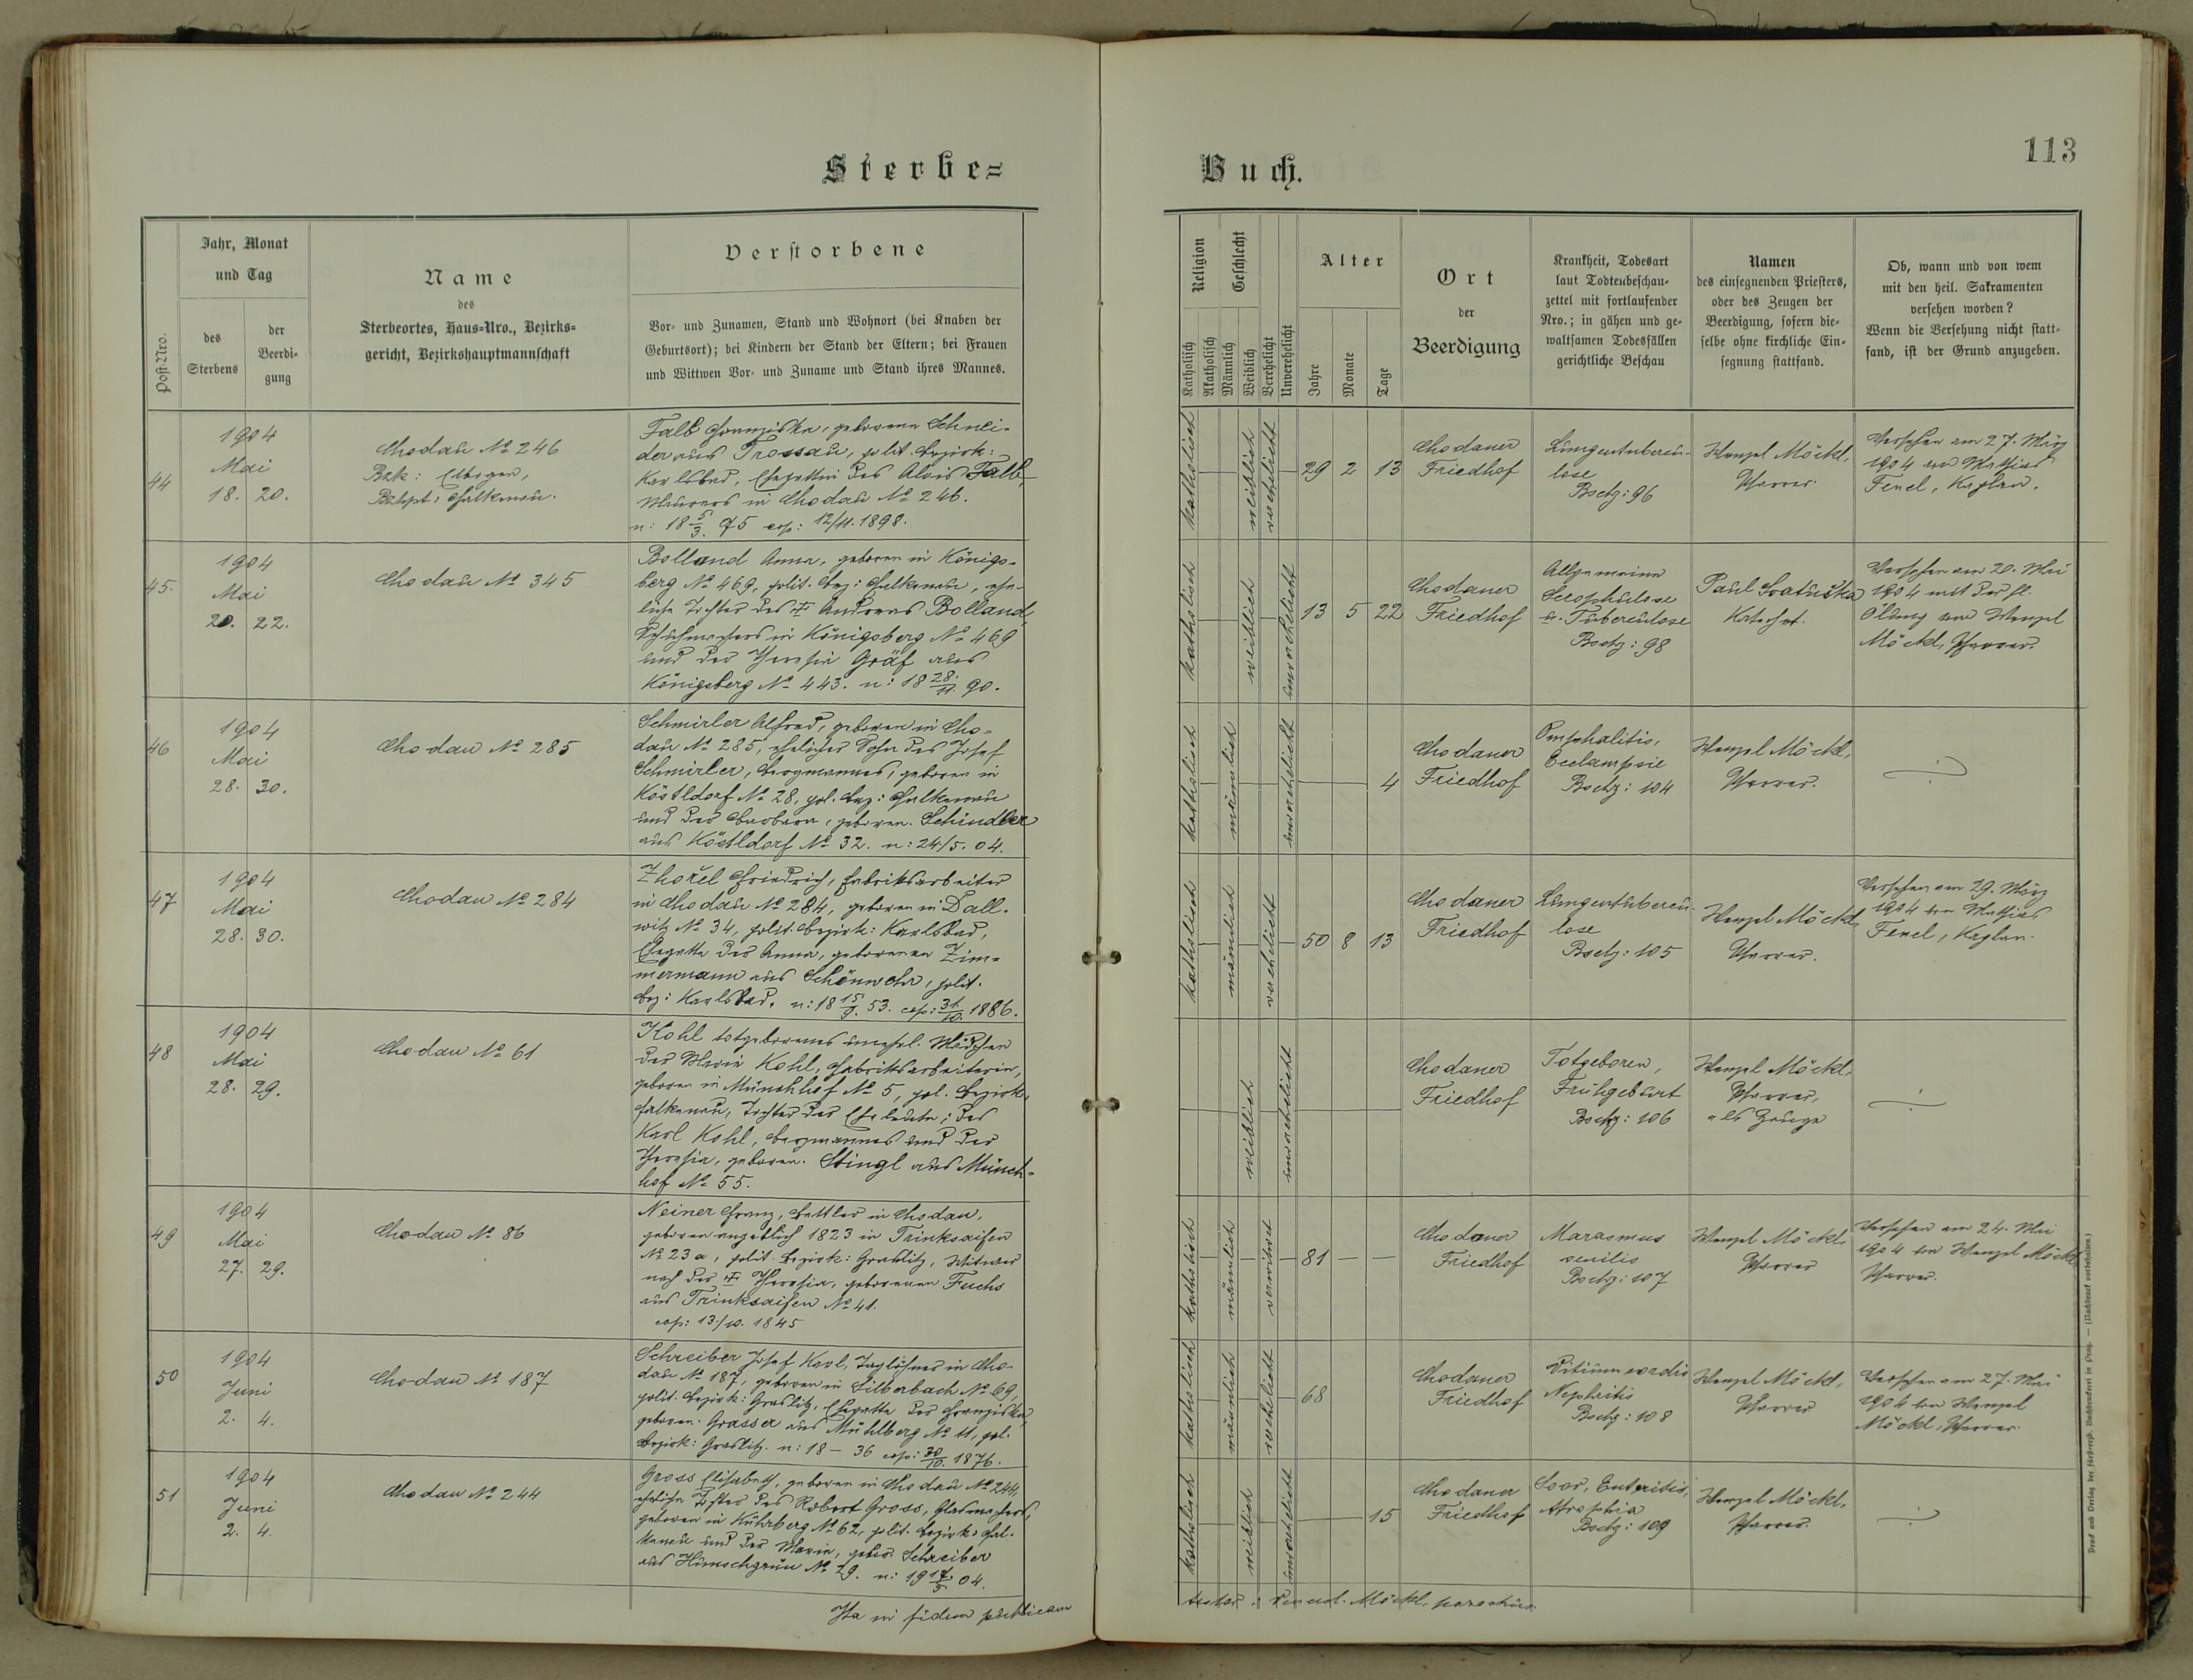 Sterbe=
Buch.
113
Post-Nro.
Jahr, Monat
und Tag
des
Sterbens
der
Beerdi=
gung
Name
des
Sterbeortes, Haus-Nro., Bezirks=
gericht, Bezirkshauptmannschaft
Verstorbene
Vor- und Zunamen, Stand und Wohnort (bei Knaben der
Geburtsort); bei Kindern der Stand der Eltern; bei Frauen
und Wittwen Vor- und Zuname und Stand ihres Mannes.
Religion
Katholisch
Akatholisch
Geschlecht
Männlich
Weiblich
Verehelicht
Unverehelicht
Alter
Jahre
Monate
Tage
Ort
der
Beerdigung
Krankheit, Todesart
laut Todtenbeschau-
zettel mit fortlaufender
Nro.; in gähen und ge-
waltsamen Todesfällen
gerichtliche Beschau
Namen
des einsegnenden Priesters,
oder des Zeugen der
Beerdigung, sofern die-
selbe ohne kirchliche Ein-
segnung stattfand.
Ob, wann und von wem
mit den heil. Sakramenten
versehen worden?
Wenn die Versehung nicht statt-
fand, ist der Grund anzugeben.
44
1904
Mai
18. 20.
Chodau № 246
Bzk: Elbogen,
Bzhpt: Falkenau.
Falb Franziska, geborene Schnei-
der aus Trossau, polit. Bezirk:
Karlsbad, Ehegattin des Alois Falb,
Maurers in Chodau № 246.
n: 18 5/3. 75 cop: 12/11. 1898.
katholisch
weiblich
verehelicht
29 2 13
Chodauer
Friedhof
Lungentubercu-
lose
Bschz: 96
Wenzel Möckl,
Pfarrer.
Versehen am 27. März
1904 von Mathias
Fenel, Kaplan.
45.
1904
Mai
20. 22.
Chodau № 345
Bolland Anna, geboren in Königs-
berg № 469, polit. Bez: Falkenau, ehe-
liche Tochter des † Andreas Bolland,
Schuhmachers in Königsberg № 469
und der Theresia Gräf aus
Königsberg № 443. n: 18 28./11. 90.
katholisch
weiblich
unverehelicht
13 5 22
Chodauer
Friedhof
Allgemeine
Scrophulose
u. Tuberculose
Bschz: 98
Paul Svatuška
Katechet.
Versehen am 20. Mai
1904 mit der hl.
Ölung von Wenzel
Möckl, Pfarrer.
46
1904
Mai
28. 30.
Chodau № 285
Schmirler Alfred, geboren in Cho-
dau № 285, ehelicher Sohn des Josef
Schmirler, Bergmannes, geboren in
Köstldorf № 28, pol. Bez: Falkenau
und der Barbara, geboren. Schindler
aus Köstldorf № 32. n: 24/5. 04.
katholisch
männlich
unverehelicht
4
Chodauer
Friedhof
Omphalitis,
Eclampsie
Bschz: 104
Wenzel Möckl,
Pfarrer.
47
1904
Mai
28. 30.
Chodau № 284
Zhořel Friedrich, Fabriksarbeiter
in Chodau № 284, geboren in Dall-
witz № 34, polit. Bezirk: Karlsbad,
Ehegatte der Anna, geborenen Zim-
mermann aus Schönwehr, polit.
Bez: Karlsbad. n: 18 15/9. 53. cop: 31/10. 1886.
katholisch
männlich
verehelicht
50 8 13
Chodauer
Friedhof
Lungentubercu-
lose
Bschz: 105
Wenzel Möckl,
Pfarrer.
Versehen am 29. März
1904 von Mathias
Fenel, Kaplan.
48
1904
Mai
28. 29.
Chodau № 61
Kohl totgeborenes unehel. Mädchen
der Maria Kohl, Fabriksarbeiterin,
geboren in Münchhof № 5, pol. Bezirk:
Falkenau, Tochter der Eheleute: des
Karl Kohl, Bergmannes und der
Theresia, geboren. Stingl aus Münch-
hof № 55.
weiblich
unverehelicht
Chodauer
Friedhof
Totgeboren,
Frühgeburt
Bschz: 106
Wenzel Möckl,
Pfarrer,
als Zeuge
49
1904
Mai
27. 29.
Chodau № 86
Neiner Franz, Bettler in Chodau,
geboren angeblich 1823 in Trinksaifen
№ 23a, polit. Bezirk: Graslitz, Witwer
nach der † Theresia, geborenen Fuchs
aus Trinksaifen № 41.
cop: 13/10. 1845
katholisch
männlich
verwitwet
81
Chodauer
Friedhof
Marasmus
senilis
Bschz: 107
Wenzel Möckl,
Pfarrer
Versehen am 24. Mai
1904 von Wenzel Möckl,
Pfarrer.
50
1904
Juni
2. 4.
Chodau № 187
Schreiber Josef Karl, Taglöhner in Cho-
dau № 187, geboren in Silberbach № 69,
polit. Bezirk: Graslitz, Ehegatte der Franziska,
geboren. Grasser aus Mühlberg № 11, pol.
Bezirk: Graslitz. n: 18 – 36 cop: 30/10. 1876.
katholisch
männlich
verehelicht
68
Chodauer
Friedhof
Vitium cordis
Nephritis
Bschz: 108
Wenzel Möckl,
Pfarrer
Versehen am 27. Mai
1904 von Wenzel
Möckl, Pfarrer.
51
1904
Juni
2. 4.
Chodau № 244
Gross Elisabeth, geboren in Chodau № 244,
eheliche Tochter des Robert Gross, Glasmachers,
geboren in Kührberg № 62, polit. Bezirk: Fal-
kenau und der Maria, gebor. Schreiber
aus Hunschgrün № 29. n: 19 17/5. 04.
katholisch
weiblich
unverehelicht
15
Chodauer
Friedhof
Soor, Enteritis,
Atrophia
Bschz: 109
Wenzel Möckl,
Pfarrer.
Ita in fidem publicam
Möckl, parochus.
Druck und Verlag der fürsterzb. Buchdruckerei in Prag. — (Nachdruck vorbehalten.)